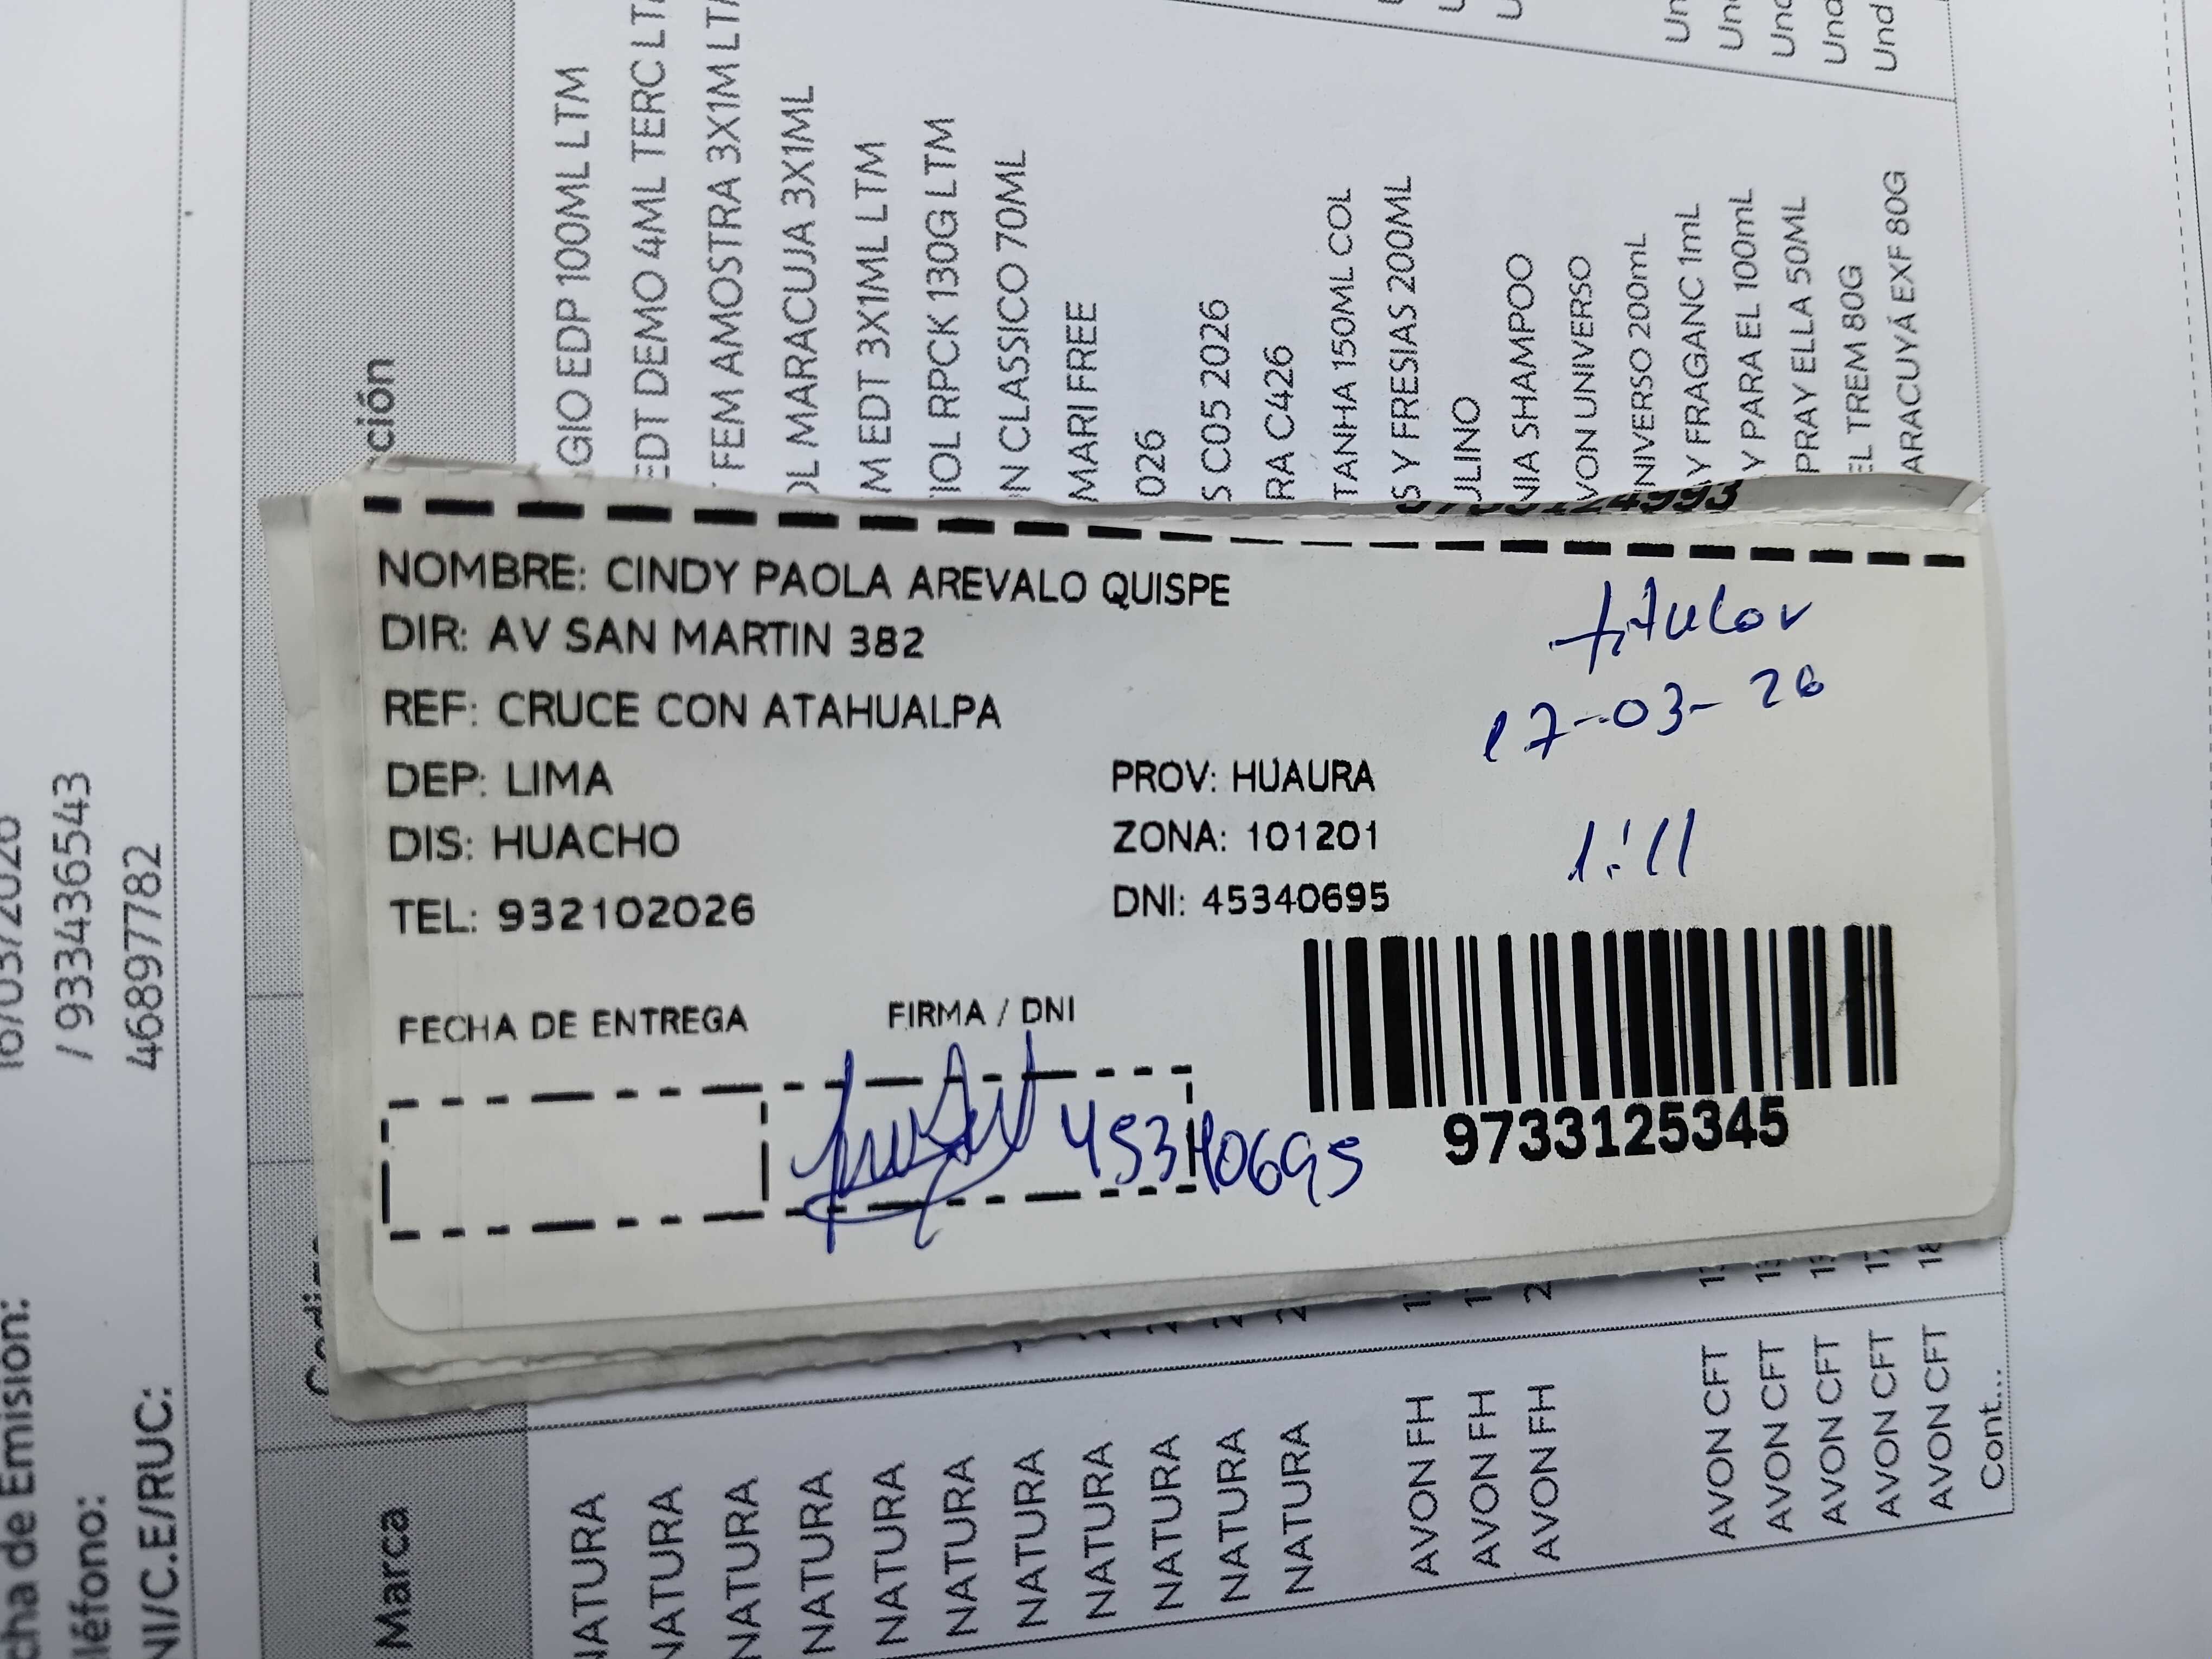 NOMBRE: CINDY PAOLA AREVALO QUISPE
DIR: AV SAN MARTIN 382
REF: CRUCE CON ATAHUALPA
DEP: LIMA
PROV: HUAURA
DIS: HUACHO
ZONA: 101201
TEL: 932102026
DNI: 45340695
titular
17-03-26
1:11
FECHA DE ENTREGA
FIRMA / DNI
45340695
9733125345
9733124993
cha de Emision:
/ 933436543
léfono:
46897782
NI/C.E/RUC:
Marca
ción
GIO EDP 100ML LTM
EDT DEMO 4ML TERC LT
FEM AMOSTRA 3X1M LT
OL MARACUJA 3X1ML
M EDT 3X1ML LTM
IOL RPCK 130G LTM
N CLASSICO 70ML
MARI FREE
026
S C05 2026
RA C426
TANHA 150ML COL
S Y FRESIAS 200ML
ULINO
NIA SHAMPOO
VON UNIVERSO
NIVERSO 200mL
Y FRAGANC 1mL
Y PARA EL 100mL
PRAY ELLA 50ML
EL TREM 80G
ARACUYÁ EXF 80G
Und
NATURA
NATURA
NATURA
NATURA
NATURA
NATURA
NATURA
NATURA
NATURA
NATURA
NATURA
AVON FH
AVON FH
AVON FH
AVON CFT
AVON CFT
AVON CFT
AVON CFT
AVON CFT
Cont...